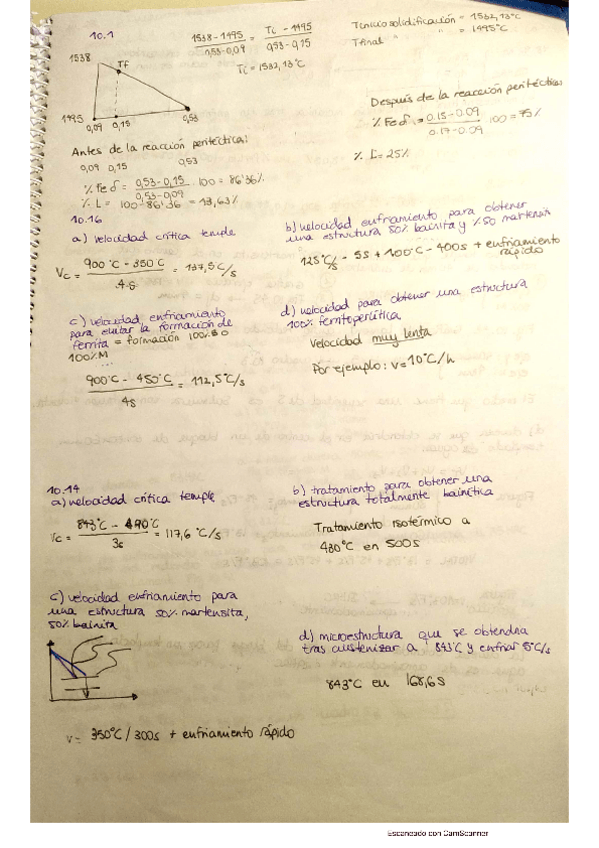 10.1
1538 - 1495 / 0,53 - 0,09 = Tc - 1495 / 0,53 - 0,15
Tc = 1532,13°C
T inicio solidificación = 1532,13°C
T final " = 1495°C
1538
Tf
1495
0,09 0,15 0,53
Después de la reacción peritéctica:
% Fe δ = 0.15 - 0.09 / 0.17 - 0.09 · 100 = 75%
% L = 25%
Antes de la reacción peritéctica:
0,09 0,15 0,53
% Fe δ = 0,53 - 0,15 / 0,53 - 0,09 · 100 = 86'36%
% L = 100 - 86'36 = 13,63%
10.16
a) velocidad crítica temple
Vc = 900°C - 350C / 4s = 137,5C/s
b) velocidad enfriamiento para obtener
una estructura 50% bainita y %50 martensita
125°C/s - 5s + 100°C - 400s + enfriamiento
rápido
c) velocidad enfriamiento
para evitar la formación de
ferrita = formación 100%
100% M
900°C - 450°C / 4s = 112,5°C/s
d) velocidad para obtener una estructura
100% ferritoperlítica
Velocidad muy lenta
Por ejemplo: v = 10°C/h
10.14
a) velocidad crítica temple
Vc = 843°C - 490°C / 3s = 117,6 °C/s
b) tratamiento para obtener una
estructura totalmente bainítica
Tratamiento isotérmico a
480°C en 500s
c) velocidad enfriamiento para
una estructura 50% martensita,
50% bainita
d) microestructura que se obtendría
tras austenizar a 843°C y enfriar 5°C/s
843°C en 168,6s
v = 350°C / 300s + enfriamiento rápido
Escaneado con CamScanner